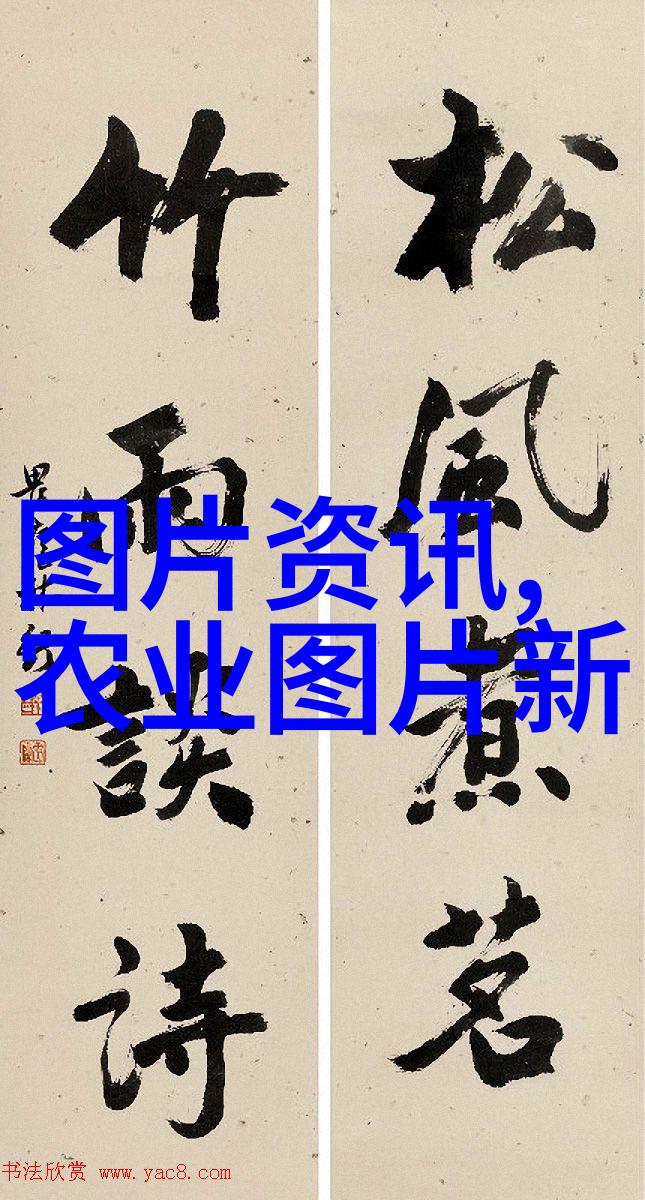 松風煮茗
竹雨談詩
图片资讯,
农业图片新
书法欣赏 www.yac8.com